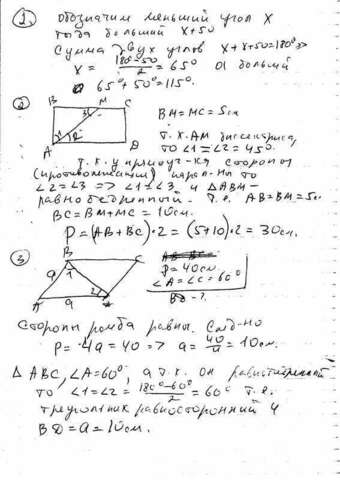 1. Обозначим меньший угол x
тогда больший x+50
Сумма двух углов x+x+50=180° =>
x = (180°-50)/2 = 65° а больший
65°+50°=115°.
2
B M C
3
1 2
A D
BM=MC=5см
т.к. AM биссектриса,
то ∠1=∠2=45°.
т.к. у прямоуг-ка стороны
(противолежащие) парал-ны то
∠2=∠3 => ∠1=∠3 и ΔABM-
равнобедренный. т.е. AB=BM=5см
BC=BM+MC=10см.
P=(AB+BC)·2=(5+10)·2=30см.
3
B C
a 1
2
A a
P=40см
∠A=∠C=60°
BD-?
Стороны ромба равны. След-но
P=4a=40 => a=40/4=10см.
Δ ABC, ∠A=60°, а т.к. он
то ∠1=∠2=(180°-60°)/2=60° т.е.
треугольник равносторонний и
BD=a=10см.